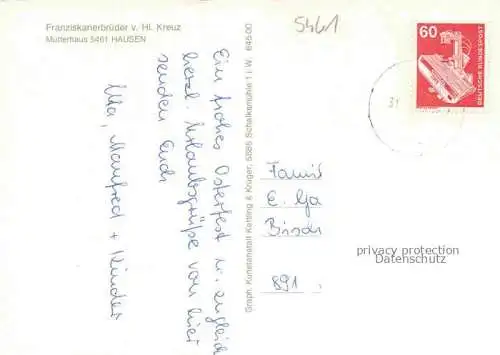 Franziskanerbrüder v. Hl. Kreuz
Mutterhaus 5461 HAUSEN
5461
60
DEUTSCHE BUNDESPOST
31
Ein frohes Osterfest u. zugleich
herzl. Urlaubsgrüße von hier
senden Euch
Uta, Manfred + Kinder
Graph. Kunstanstalt Kettling & Krüger, 5885 Schalksmühle 1 i. W. 645.00
Famil
E.
891
privacy protection
Datenschutz